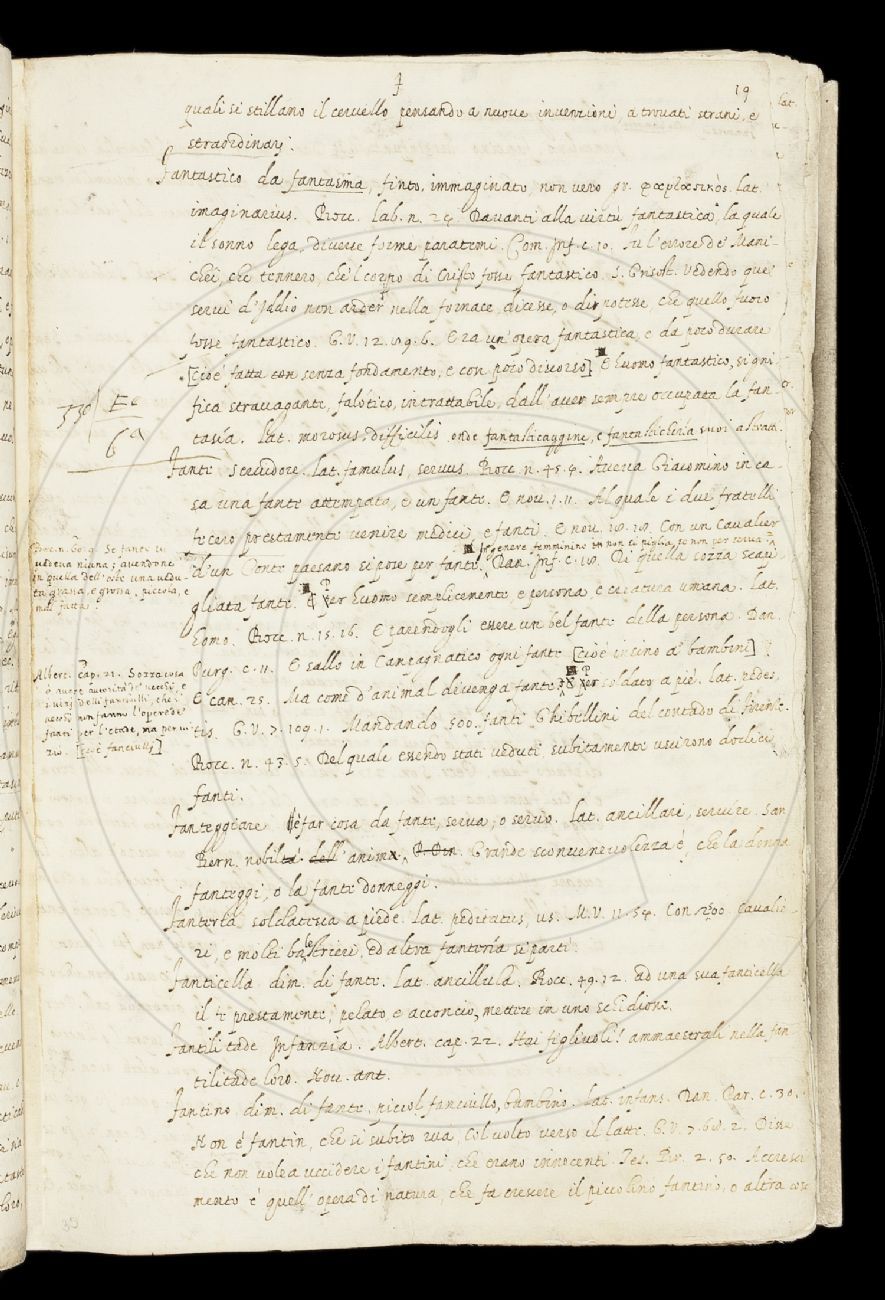 F
19
quali si stillano il ceruello pensando a nuoue inuenzioni, a trouati strani, e
straordinarj.
Fantastico da fantasma, finto, immaginato, non vero gr. φανταστικὸς. lat.
imaginarius. Bocc. lab. n. 24. Dauanti alla virtù fantastica, la quale
il sonno lega, diuerse forme paratemi. Com. Inf. c. 10. Fu l'errore de' Mani-
chei, che tennero, che 'l corpo di Cristo fosse fantastico. S. Grisost. Vedendo que'
serui d'Iddio non arder nella fornace, dicesse, o dir potesse, che quello fuoco
fosse fantastico. G. V. 12. 19. 6. Era un'opera fantastica, e da poco durare
[cioè fatta con senza fondamento, e con poco discorso] E huomo fantastico, signi-
fica strauagante, falotico, intrattabile, dall'auer sempre occupata la fan-
tasia. lat. morosus, difficilis onde fantasticaggine, e fantasticheria suoi astratt.
330 Ec
6a
Fante seruidore. lat. famulus, seruus. Bocc. n. 45. 4. Aueua Giacomino in ca-
sa una fante attempata, e un fante. E nou. 1. 11. Al quale i due fratelli
fecero prestamente uenire medici, e fanti. E nou. 18. 18. Con un caualier
d'un Conte paesano si pose per fante. In genere femminino non si piglia, se non per serua Dan. Inf. c. 18. Di quella sozza scapi-
gliata fante. Per huomo semplicemente e persona, e creatura umana. lat.
homo. Bocc. n. 15. 16. E parendogli essere un bel fante della persona. Dan.
Purg. c. 11. E sallo in Campagnatico ogni fante [cioè insino a' bambini]
E can. 25. Ma come d'animal diuenga fante. Per soldato a piè. lat. pedes,
tis. G. V. 7. 109. 1. Mandando 500. fanti Ghibellini del contado di Firenze.
Bocc. n. 43. 5. Del quale essendo stati ueduti subitamente uscirono dodici
fanti.
Bocc. n. 60. 9. Se fante ui
uedeua niuna; auendone
in quella dell'oste una uedu-
ta grassa, e grossa, piccola, e
mal fatta.
Albert. cap. 22. Sozza cosa
è auere autorità de' uecchi, e
i uizj delli fanciulli, che i
uecchi non fanno l'opere de'
fanti per l'etade, ma per ui-
zio. [cioè fanciulli]
Fanteggiare è far cosa da fante, serua, o seruo. lat. ancillari, seruire. San
Bern. nobiltà dell'anima. Grande sconueneuolezza è, che la donna
fanteggi, o la fante donneggi.
Fanteria soldatesca a piede. lat. peditatus, us. M. V. 11. 54. Con 500. caualie-
ri, e molti balestrieri, ed altra fanteria si partì.
Fanticella dim. di fante. lat. ancillula. Bocc. 49. 12. ad una sua fanticella
il fe prestamente, pelato, e acconcio, mettere in uno schedione.
Fantilitade Infanzia. Albert. cap. 22. Hai figliuoli? ammaestrali nella fan-
tilitade loro. Nou. ant.
Fantino dim. di fante. piccol fanciullo, bambino. lat. infans. Dan. Par. c. 30.
Non è fantin, che sì subito rua, Col uolto verso il latte. G. V. 7. 68. 2. Disse
che non volea uccidere i fantini, che erano innocenti. Tes. Br. 2. 50. Accresci-
mento è quell'opera di natura, che fa crescere il piccolino fantino, o altra cosa
30